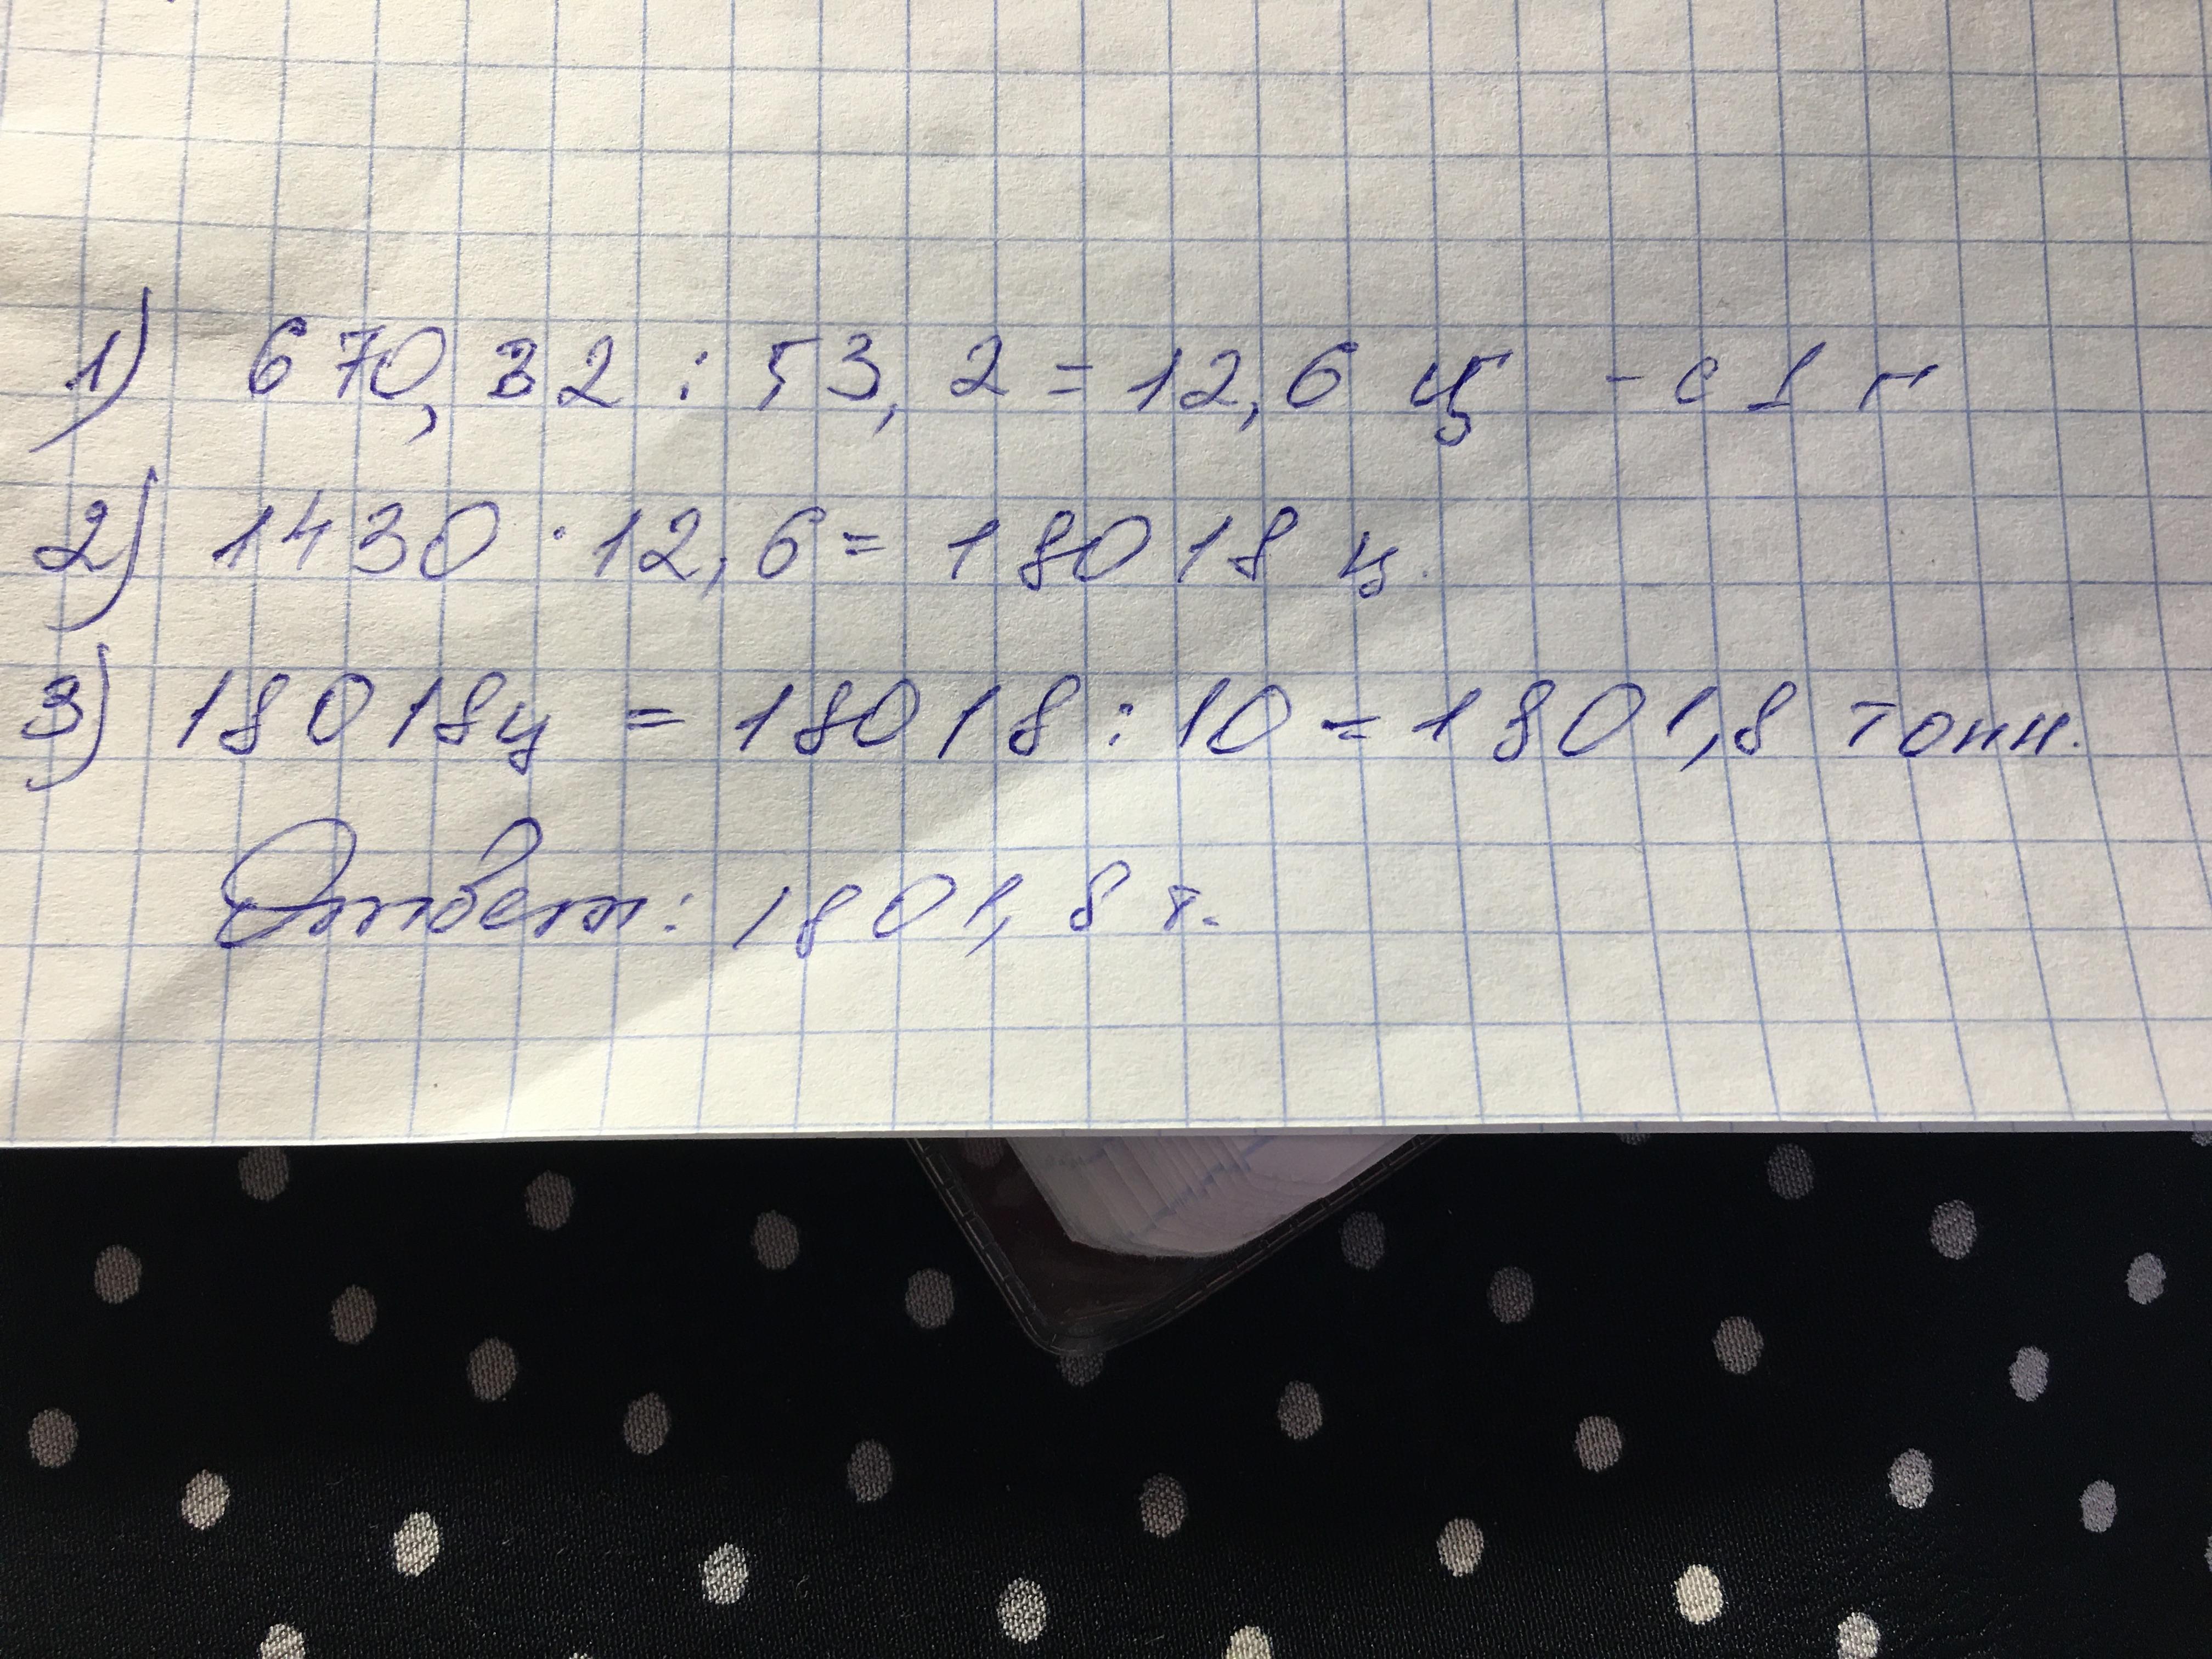 1) 670,32 : 53,2 = 12,6 ц - с 1 г
2) 1430 · 12,6 = 18018 ц.
3) 18018ц = 18018 : 10 = 1801,8 тонн.
Ответ: 1801,8 т.